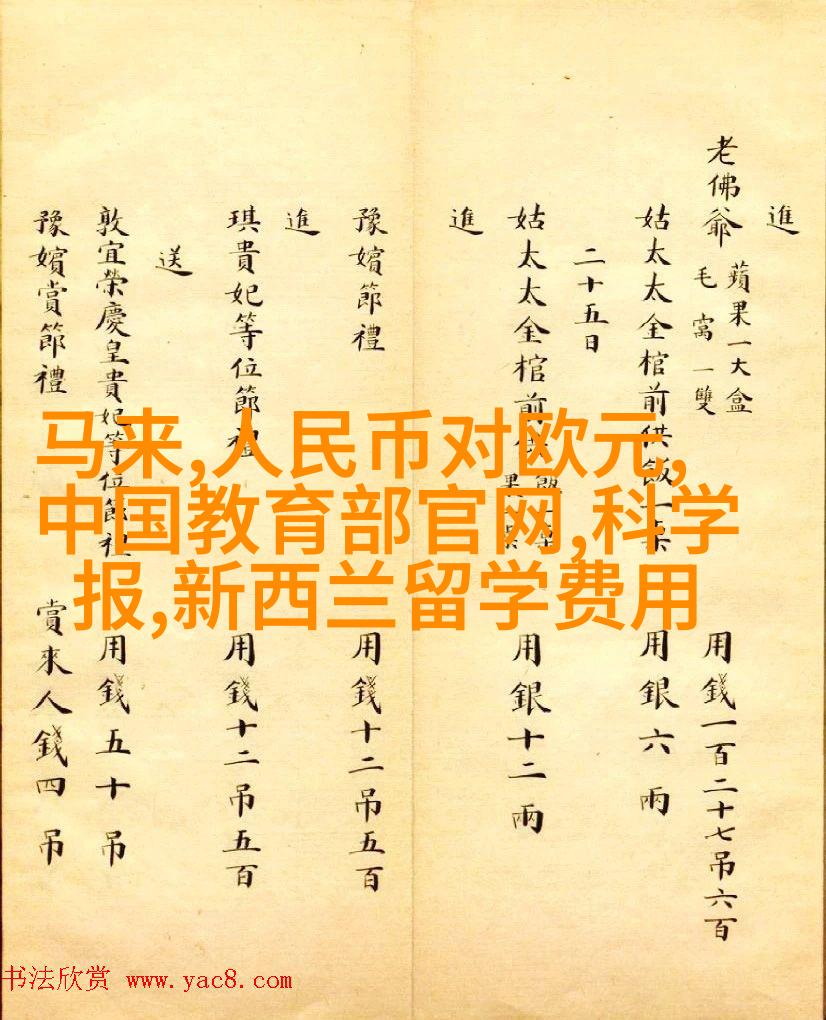 進
老佛爺
蘋果一大盒
毛窩一雙
用錢一百二十七吊六百
姑太太金棺前供飯一桌
用銀六兩
二十五日
姑太太金棺前
用銀十二兩
進
豫嬪節禮
用錢十二吊五百
進
琪貴妃等位節禮
用錢十二吊五百
送
敦宜榮慶皇貴妃等位節禮
用錢五十吊
豫嬪賞節禮
賞來人錢四吊
马来,人民币对欧元,
中国教育部官网,科学
报,新西兰留学费用
书法欣赏 www.yac8.com